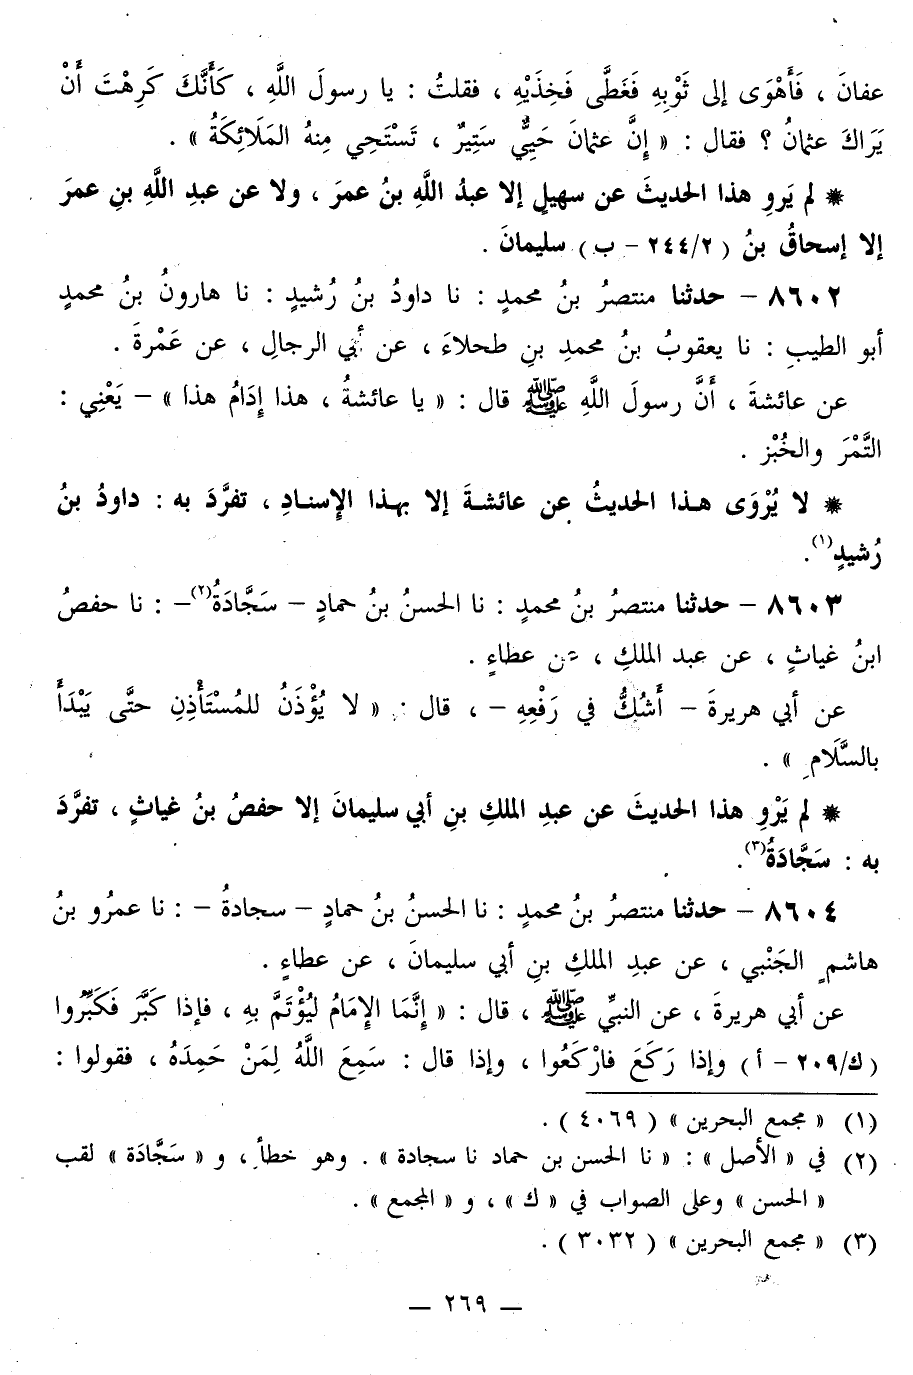 عفانَ ، فَأَهْوَى إلى ثَوْبِهِ فَغَطَّى فَخِذَيْهِ ، فقلتُ : يا رسولَ اللَّهِ ، كَأَنَّكَ كَرِهْتَ أَنْ
يَرَاكَ عثمانُ ؟ فقال : « إِنَّ عثمانَ حَيِيٌّ سَتِيرٌ ، تَسْتَحِي مِنهُ المَلَائِكَةُ » .
* لم يَروِ هذا الحديثَ عن سهيلٍ إلا عبدُ اللَّهِ بنُ عمرَ ، ولا عن عبدِ اللَّهِ بنِ عمرَ
إلا إسحاقُ بنُ ( ٢/ ٢٤٤ – ب ) سليمانَ .
٨٦٠٢ – حدثنا منتصرُ بنُ محمدٍ : نا داودُ بنُ رُشيدٍ : نا هارونُ بنُ محمدٍ
أبو الطيبِ : نا يعقوبُ بنُ محمدِ بنِ طحلاءَ ، عن أبي الرجالِ ، عن عَمْرةَ .
عن عائشةَ ، أَنَّ رسولَ اللَّهِ ﷺ قال : « يا عائشةُ ، هذا إِدَامُ هذا » – يَعْنِي :
التَّمْرَ والخُبْز .
* لا يُرْوَى هذا الحديثُ عن عائشةَ إلا بهذا الإسنادِ ، تفرَّدَ به : داودُ بنُ
رُشيدٍ(١).
٨٦٠٣ – حدثنا منتصرُ بنُ محمدٍ : نا الحسنُ بنُ حمادٍ – سَجَّادَةُ(٢)– : نا حفصُ
ابنُ غياثٍ ، عن عبد الملكِ ، عن عطاءٍ .
عن أبي هريرةَ – أَشُكُّ في رَفْعِهِ – ، قال : « لا يُؤْذَنُ للمُسْتَأْذِنِ حتَّى يَبْدَأَ
بالسَّلَامِ » .
* لم يَرْوِ هذا الحديثَ عن عبدِ الملكِ بنِ أبي سليمانَ إلا حفصُ بنُ غياثٍ ، تفرَّدَ
به : سَجَّادَةُ(٣).
٨٦٠٤ – حدثنا منتصرُ بنُ محمدٍ : نا الحسنُ بنُ حمادٍ – سجادةُ – : نا عمرُو بنُ
هاشمٍ الجَنْبي ، عن عبدِ الملكِ بنِ أبي سليمانَ ، عن عطاءٍ .
عن أبي هريرةَ ، عن النبيِّ ﷺ ، قال : « إِنَّمَا الإِمَامُ لِيُؤْتَمَّ بِهِ ، فإذا كَبَّرَ فَكَبِّرُوا
( ك/ ٢٠٩ – أ ) وإذا رَكَعَ فارْكَعُوا ، وإذا قال : سَمِعَ اللَّهُ لِمَنْ حَمِدَهُ ، فقولوا :
(١) « مجمع البحرين » ( ٤٠٦٩ ) .
(٢) في « الأصل » : « نا الحسن بن حماد نا سجادة » . وهو خطأ ، و « سَجَّادَة » لقب
« الحسن » وعلى الصواب في « ك » ، و « المجمع » .
(٣) « مجمع البحرين » ( ٣٠٣٢ ) .
— ٢٦٩ —